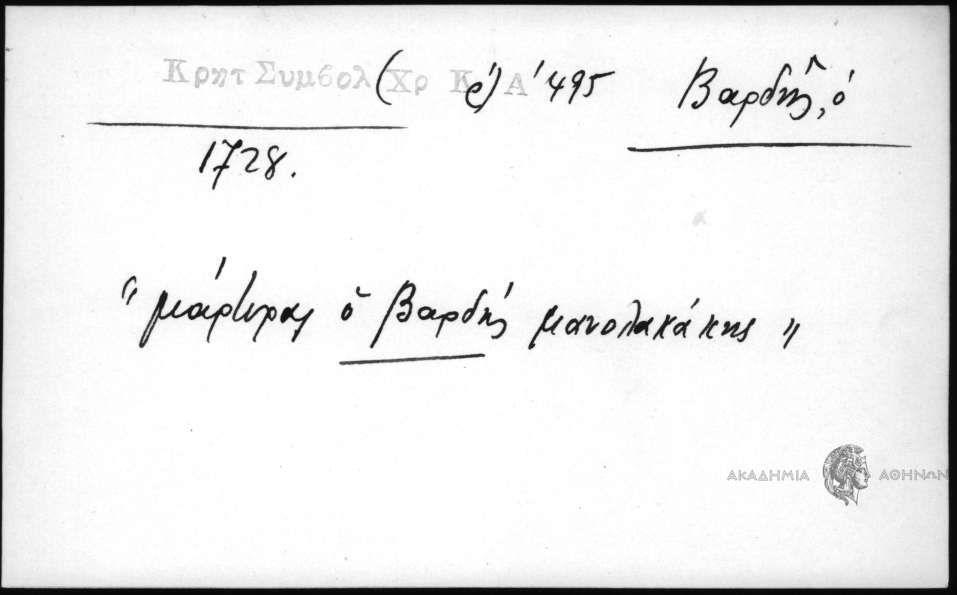 Κρητ Συμβολ (Χρ Κρ) Α' 495 Βαρδῆς, ὁ
1728.
"μάρτυρας ὁ Βαρδής μανολακάκης"
ΑΚΑΔΗΜΙΑ ΑΘΗΝΩΝ